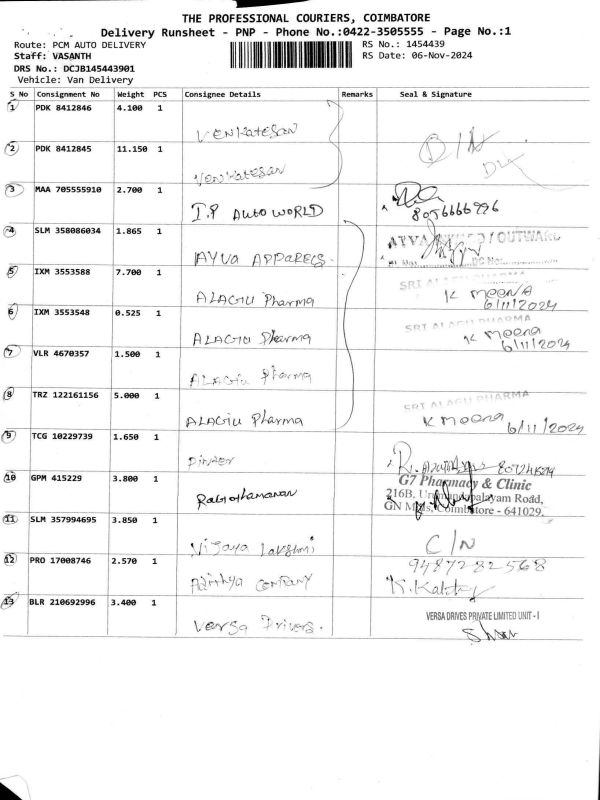 THE PROFESSIONAL COURIERS, COIMBATORE
Delivery Runsheet - PNP - Phone No.:0422-3505555 - Page No.:1
Route: PCM AUTO DELIVERY
RS No.: 1454439
Staff: VASANTH
RS Date: 06-Nov-2024
DRS No.: DCJB145443901
Vehicle: Van Delivery
S No Consignment No Weight PCS Consignee Details Remarks Seal & Signature
1 PDK 8412846 4.100 1
Venkatesan
2 PDK 8412845 11.150 1
Venkatesan
3 MAA 705555910 2.700 1
I.P AUto WORLD
8056666996
4 SLM 358086034 1.865 1
OUTWARD
AYVA APPARELS.
5 IXM 3553588 7.700 1
ALAGU Pharma
K MeenA
6/11/2024
6 IXM 3553548 0.525 1
SRI ALAGU PHARMA
ALAGU Pharma
K Meena
6/11/2024
7 VLR 4670357 1.500 1
ALAGU Pharma
8 TRZ 122161156 5.000 1
SRI ALAGU PHARMA
ALAGU Pharma
K Meena
6/11/2024
9 TCG 10229739 1.650 1
10 GPM 415229 3.800 1
G7 Pharmacy & Clinic
216B,
Road,
Ragothamanan
GN Mills, Coimbatore - 641029.
11 SLM 357994695 3.850 1
Vijaya Lakshmi
C/N
12 PRO 17008746 2.570 1
9487282568
Adithya Company
13 BLR 210692996 3.400 1
VERSA DRIVES PRIVATE LIMITED UNIT - I
Versa Drivers.